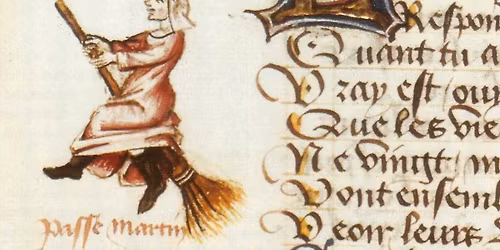 Respon
Quant tu a
Vray est / ouy
Que les vie
Ne vingt / m
Vont ensemb
Veoir leurs
passe martin